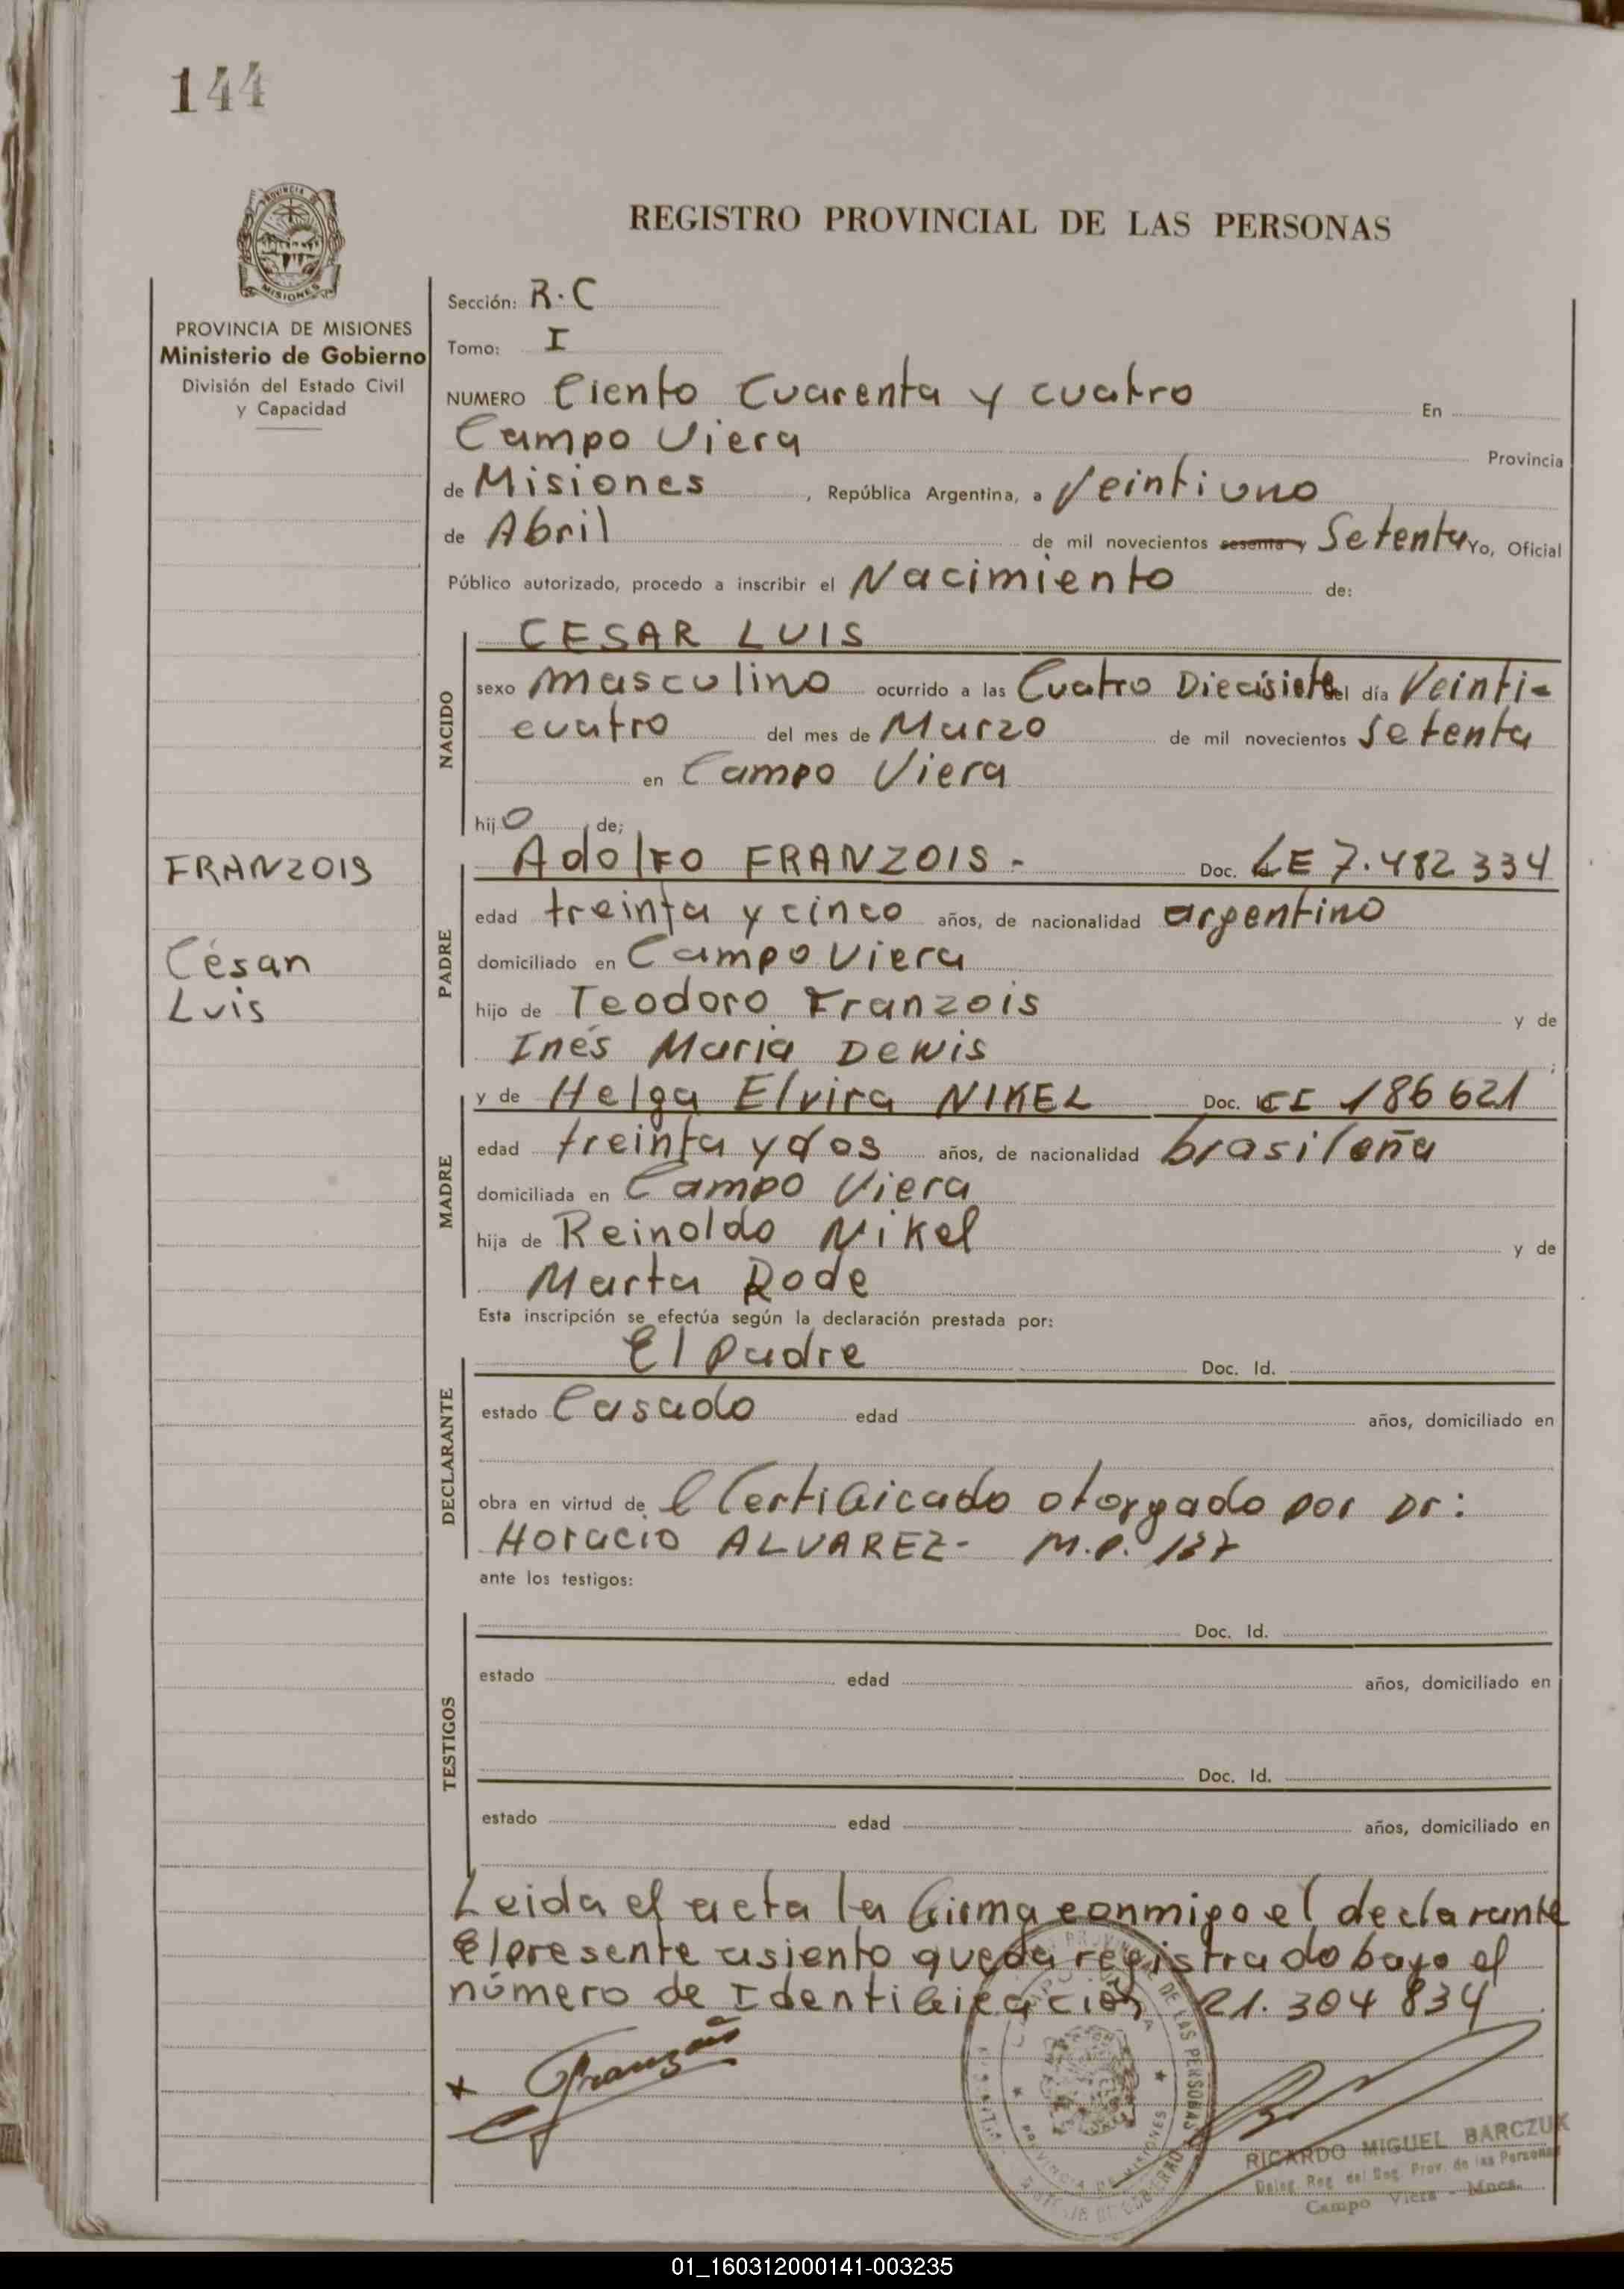 144
PROVINCIA
MISIONES
PROVINCIA DE MISIONES
Ministerio de Gobierno
División del Estado Civil
y Capacidad
FRANZOIS
César
Luis
REGISTRO PROVINCIAL DE LAS PERSONAS
Sección: R.C
Tomo: I
NUMERO Ciento Cuarenta y cuatro En
Campo Viera Provincia
de Misiones, República Argentina, a Veintiuno
de Abril de mil novecientos sesenta y Setenta Yo, Oficial
Público autorizado, procedo a inscribir el Nacimiento de:
NACIDO
CESAR LUIS
sexo masculino ocurrido a las Cuatro Diecisiete del día Veinti-
cuatro del mes de Marzo de mil novecientos setenta
en Campo Viera
hijo de;
PADRE
Adolfo FRANZOIS - Doc. LE 7.482 334
edad treinta y cinco años, de nacionalidad argentino
domiciliado en Campo Viera
hijo de Teodoro Franzois y de
Inés Maria Dewis ;
MADRE
y de Helga Elvira NIKEL Doc. CI 186 621
edad treinta y dos años, de nacionalidad brasileña
domiciliada en Campo Viera
hija de Reinoldo Nikel y de
Marta Rode
Esta inscripción se efectúa según la declaración prestada por:
DECLARANTE
El padre Doc. Id.
estado Casado edad años, domiciliado en
obra en virtud de l Certificado otorgado por Dr:
Horacio ALVAREZ- M.P. 137
ante los testigos:
TESTIGOS
Doc. Id.
estado edad años, domiciliado en
Doc. Id.
estado edad años, domiciliado en
Leida el acta la firma conmigo el declarante
El presente asiento queda registrado bajo el
número de Identificación 21.304 834
x Franzois
PROVINCIA DE MISIONES
RICARDO MIGUEL BARCZUK
Deleg. Reg. del Reg. Prov. de las Personas
Campo Viera - Mnes.
01_160312000141-003235